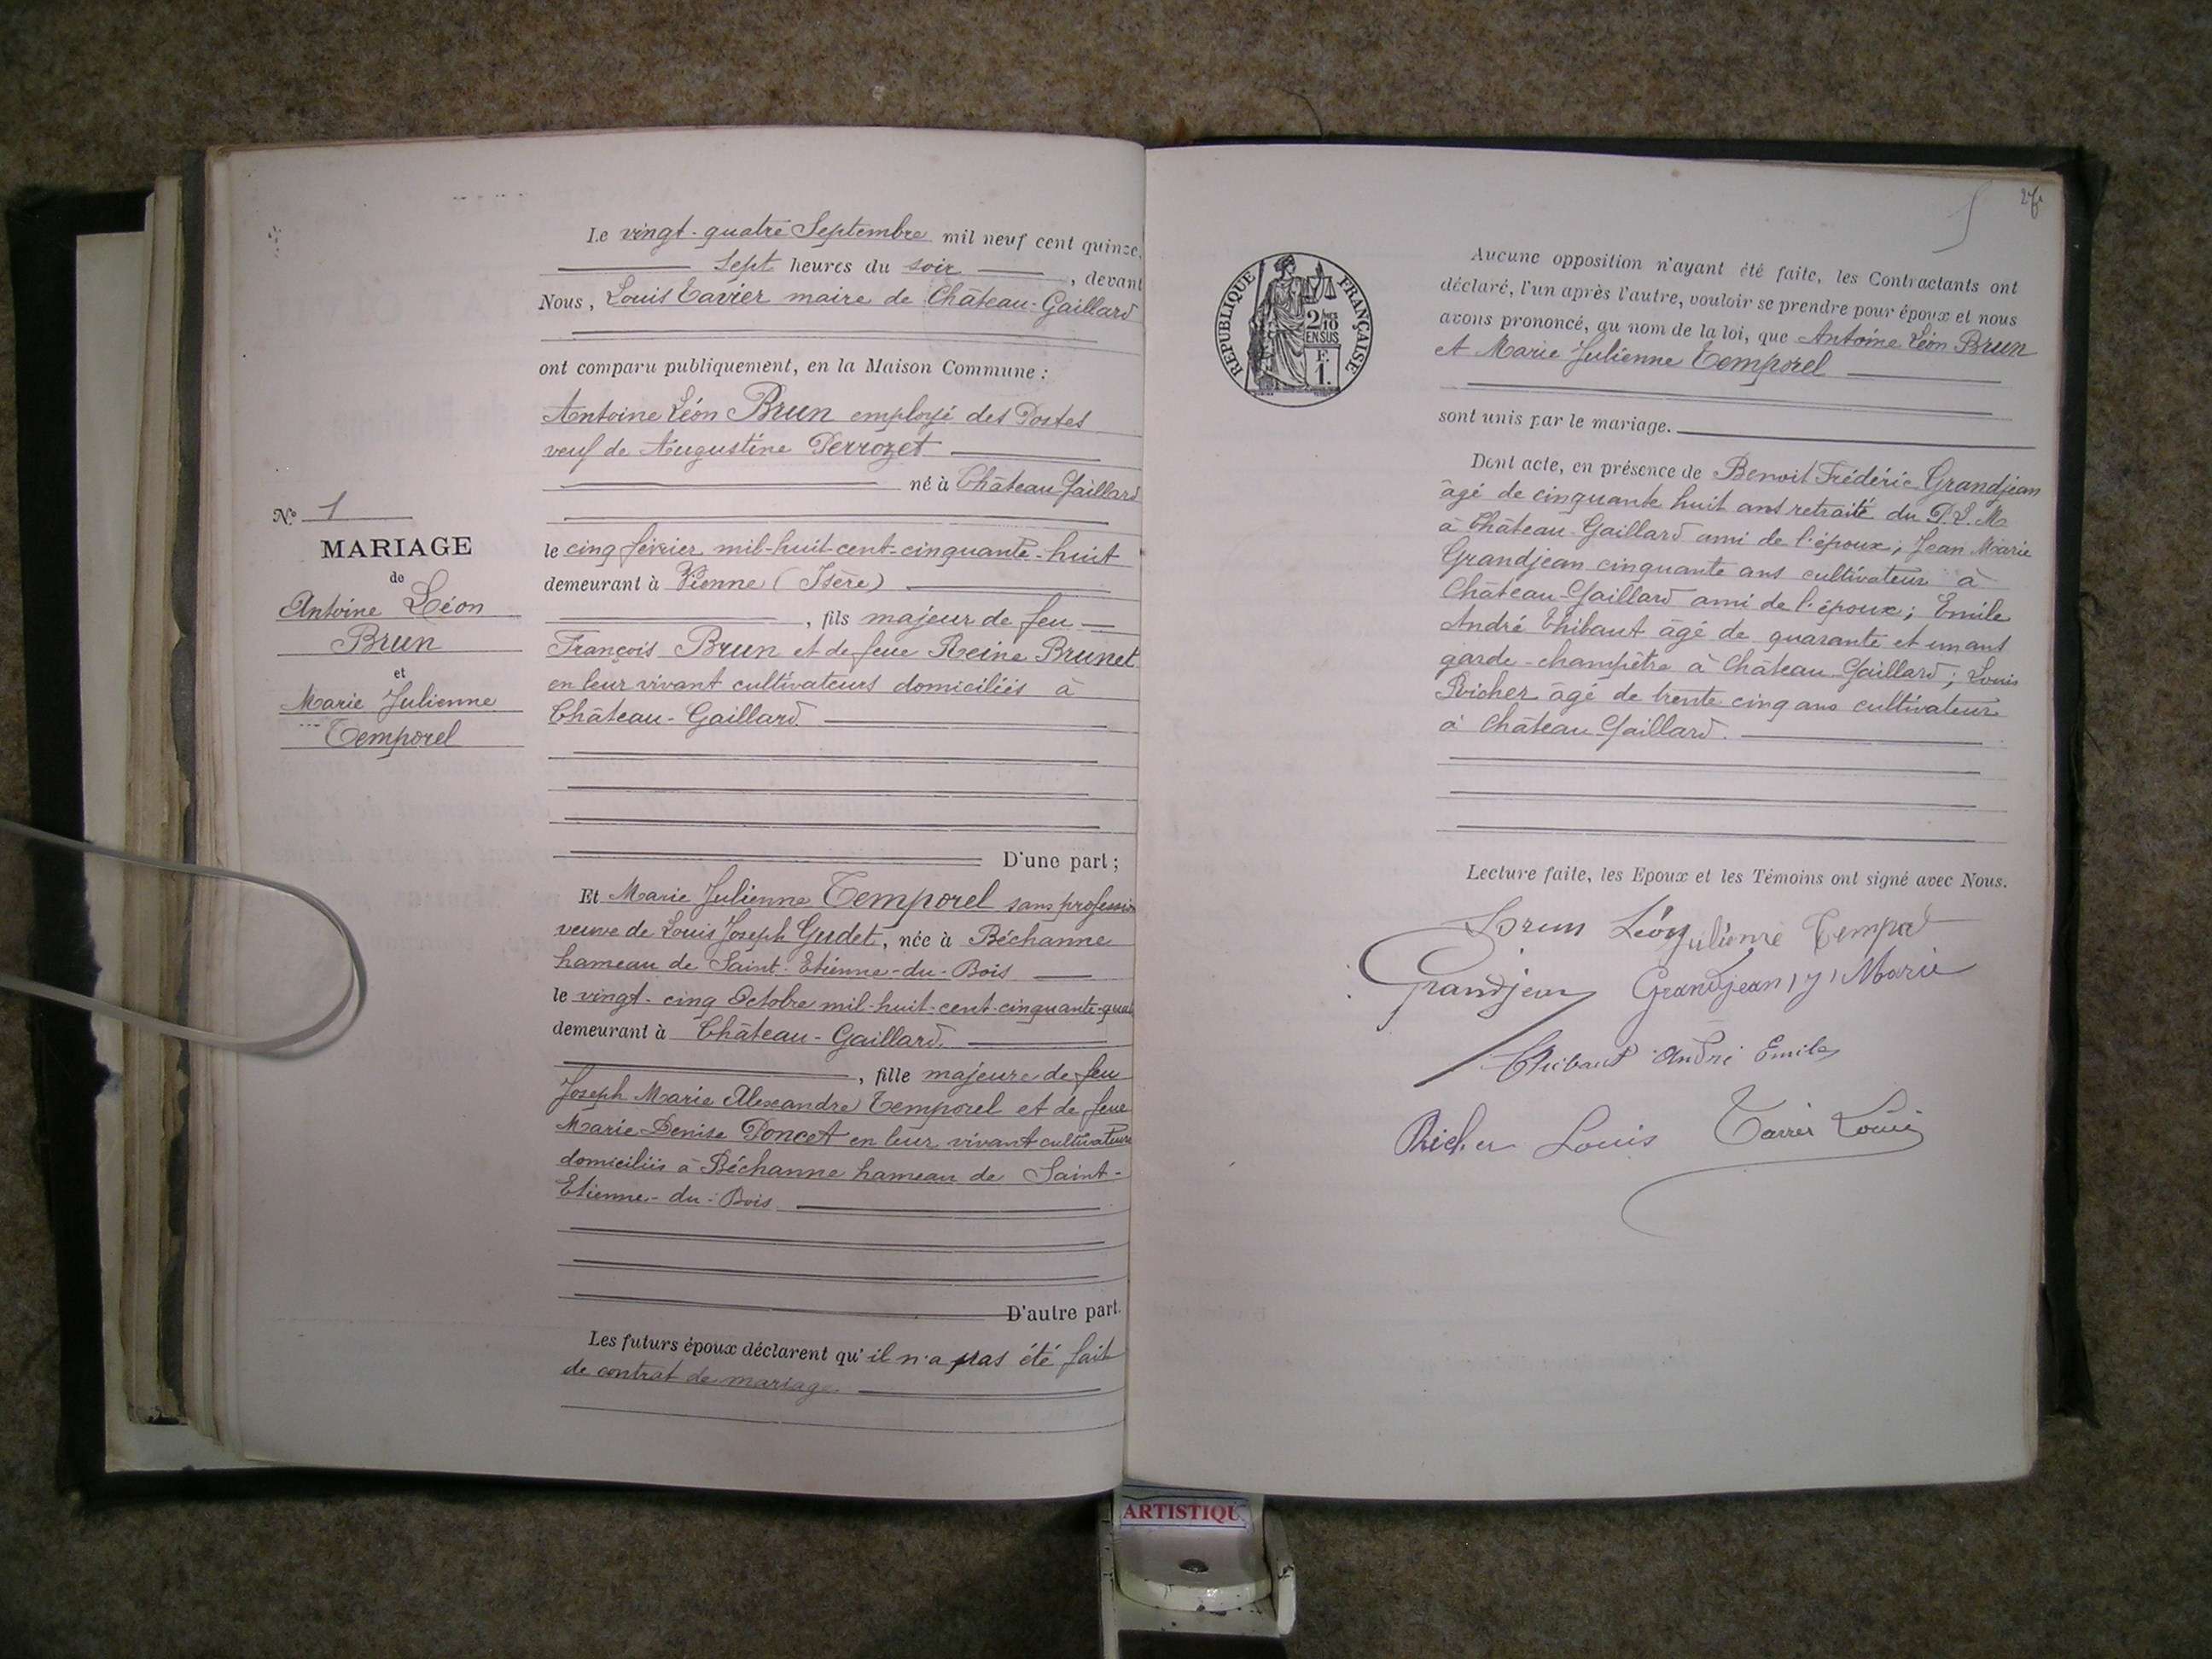 Le vingt-quatre Septembre mil neuf cent quinze,
Sept heures du soir, devant
Nous, Louis Tavier maire de Château-Gaillard
ont comparu publiquement, en la Maison Commune :
Antoine Léon Brun employé des Postes
veuf de Augustine Perrozet
né à Château-Gaillard
le cinq février mil-huit-cent-cinquante-huit
demeurant à Vienne (Isère)
, fils majeur de feu
François Brun et de feue Reine Brunet
en leur vivant cultivateurs domiciliés à
Château-Gaillard
D'une part ;
Et Marie Julienne Temporel sans profession
veuve de Louis Joseph Gudet, née à Béchanne
hameau de Saint-Etienne-du-Bois
le vingt-cinq Octobre mil-huit-cent-cinquante-quat
demeurant à Château-Gaillard
, fille majeure de feu
Joseph Marie Alexandre Temporel et de feue
Marie Denise Poncet en leur vivant cultivateurs
domiciliés à Béchanne hameau de Saint-
Etienne-du-Bois
D'autre part.
Les futurs époux déclarent qu'il n'a pas été fait
de contrat de mariage
N° 1
MARIAGE
de
Antoine Léon
Brun
et
Marie Julienne
Temporel
REPUBLIQUE FRANÇAISE
2/10
EN SUS
F.
1.
Aucune opposition n'ayant été faite, les Contractants ont
déclaré, l'un après l'autre, vouloir se prendre pour époux et nous
avons prononcé, au nom de la loi, que Antoine Léon Brun
et Marie Julienne Temporel
sont unis par le mariage.
Dont acte, en présence de Benoit Frédéric Grandjean
âgé de cinquante huit ans retraité du P.L.M
à Château-Gaillard ami de l'époux ; Jean Marie
Grandjean cinquante ans cultivateur à
Château-Gaillard ami de l'époux ; Emile
André Thibaut âgé de quarante et un ans
garde-champêtre à Château-Gaillard ; Louis
Richer âgé de trente cinq ans cultivateur
à Château Gaillard.
Lecture faite, les Epoux et les Témoins ont signé avec Nous.
Brun Léon Julienne
Grandjean Grandjean J Marie
Thibaut André Emile
Richer Louis Tavier Louis
ARTISTIQU